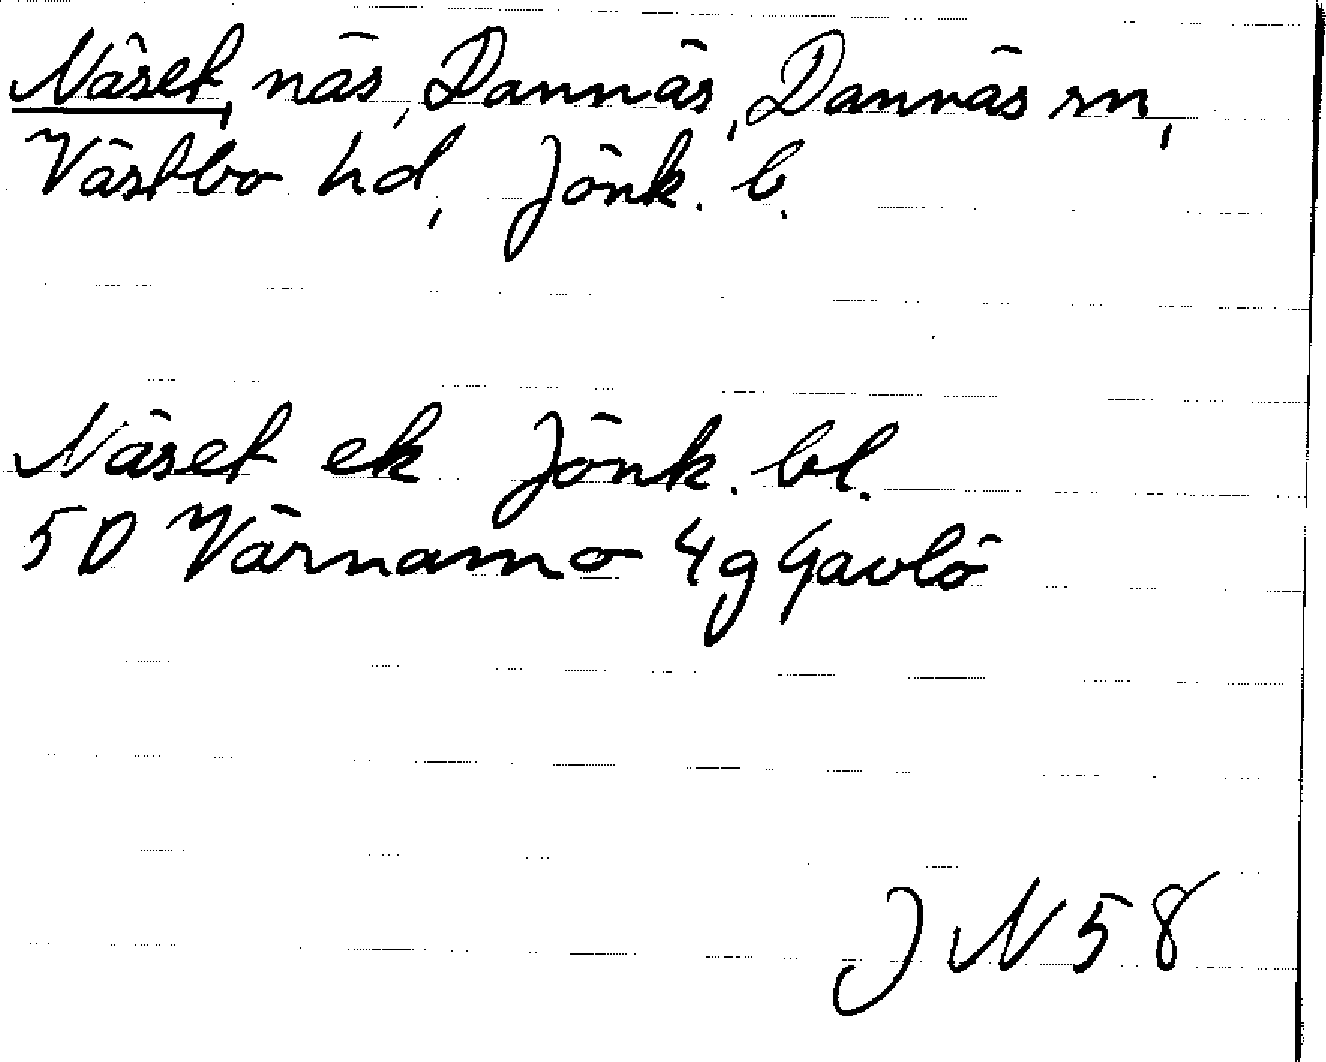 Näset, näs, Dannäs, Dannäs sn,
Västbo hd, Jönk. l.
Näset ek Jönk. bl.
5D Värnamo 4g Gavlö
J N 58